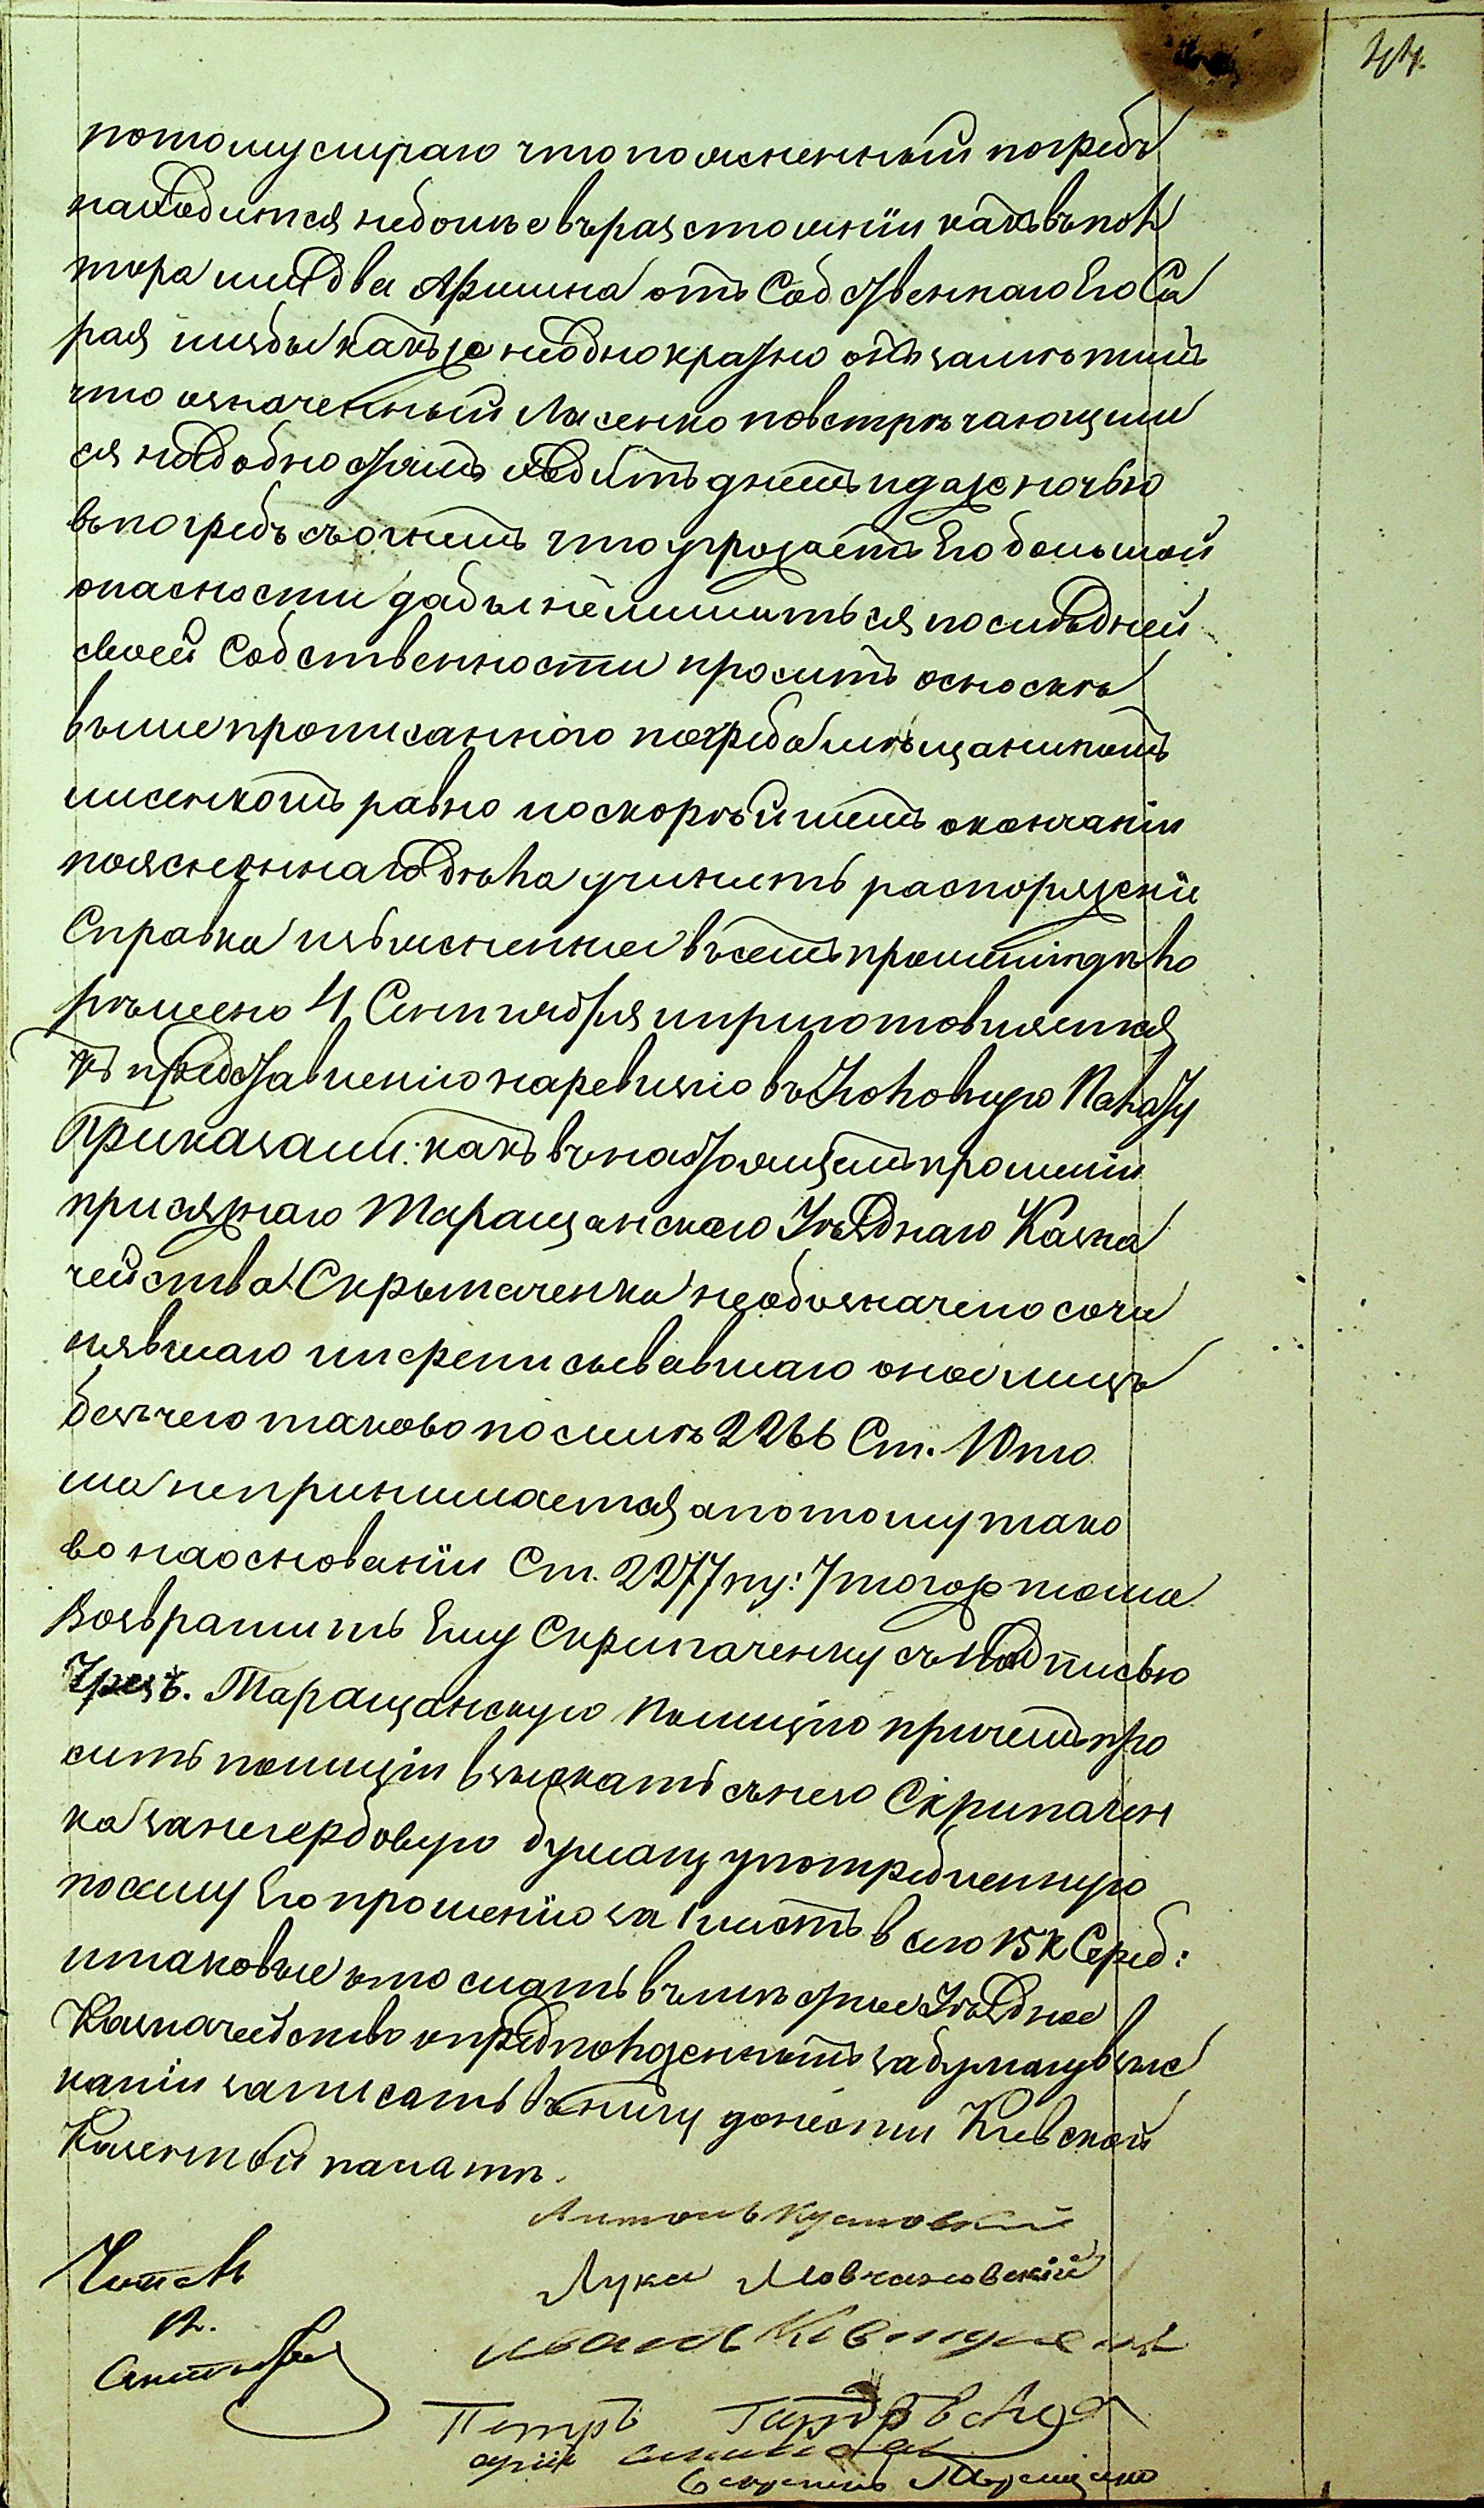 44.
потому считаю что поясненный погребъ
находится неболѣе въ разстояніи какъ въ пол
тора или два Аршина отъ Собственнаго Его Са
рая избы какъ же неоднократно онъ замѣтилъ
что означенный Лисенко повстрѣчающим
ся надобностямъ ходитъ днемъ и даже ночью
въ погребъ съ огнемъ что угрожаетъ Его большой
опасности дабы не лишиться последней
своей Собственности проситъ осноскѣ
вышепрописаннаго погреба мѣщаниномъ
лисенкомъ равно поскорѣйшемъ окончаніи
поясненнаго дѣла учинить распоряженіе
Справка изъясненное въ семъ прошеніи дѣло
рѣшено 4 Сентября и приготовляется
къ представленію на ревизію въ Уголовную Палату
Приказали: какъ въ настоящемъ прошеніи
присяжнаго Таращанскаго Уѣзднаго Казна
чейства Скрыпаченка необозначено сочи
нявшаго и переписывавшаго оное лицъ
безъ чего таково по силѣ 2266 Ст. 10 то
ма непринимается а потому тако
во на основаніи Ст. 2277 пу: 7 того ж тома
Возвратить Ему Скрипаченку съ надписью
Чрезъ. Таращанскую Полицію причемъ про
сить полиціи взыскать съ него Скрипачен
ка за негербовую бумагу употребленную
по сему Его прошенію за 1 листъ всего 15 к Сереб:
и таковые отослать въ мѣстное Уѣздное
Казначейство о предположенномъ за бумагу взыс
каніи записать въ книгу донести Кіевской
Казенной палатѣ.
Антонъ
Читалъ
Лука Мовчановскій
Иванъ
Петръ